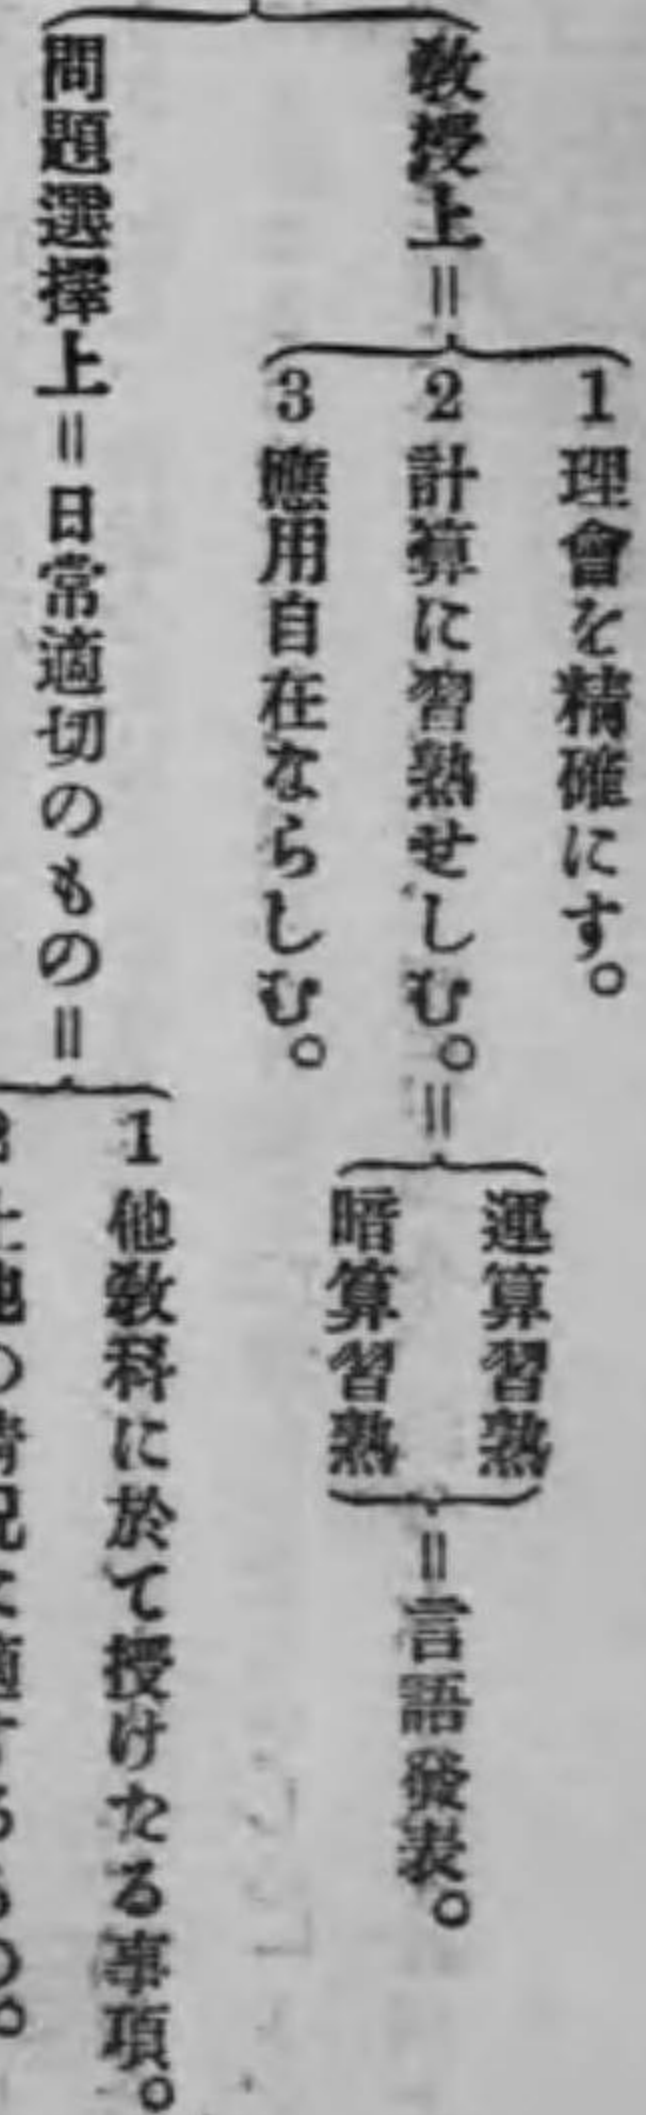 敎授上=
1 理會を精確にす。
2 計算に習熟せしむ。=
運算習熟
暗算習熟
=言語發表。
3 應用自在ならしむ。
問題選擇上=日常適切のもの=
1 他敎科に於て授けたる事項。
2 土地の情況に適するもの。